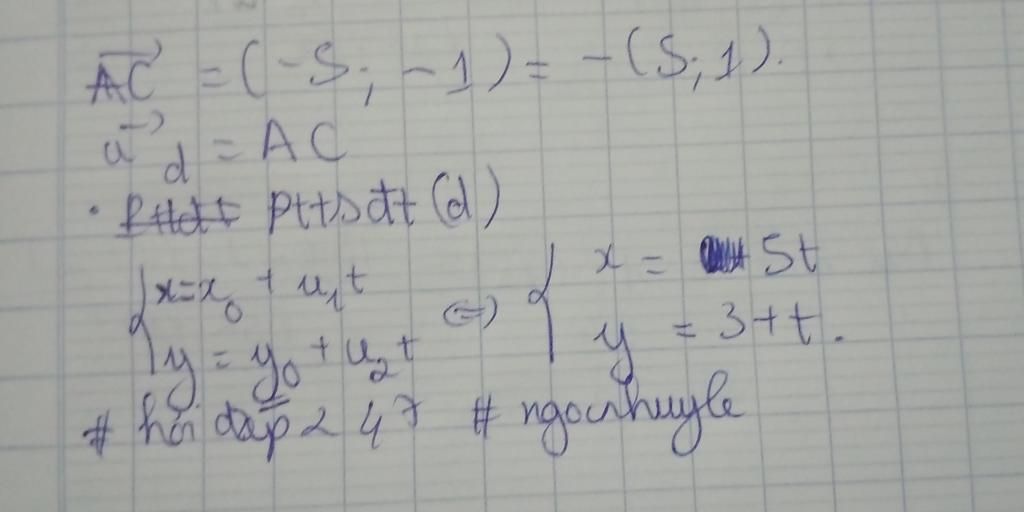 AC→ = (-5; -1) = -(5; 1).
u→d = AC
• Pttdt PttsĐt (d)
{ x = x₀ + u₁t ⇔ { x = 5t
{ y = y₀ + u₂t { y = 3 + t.
# hỏi đáp 247 # ngocnhuyle